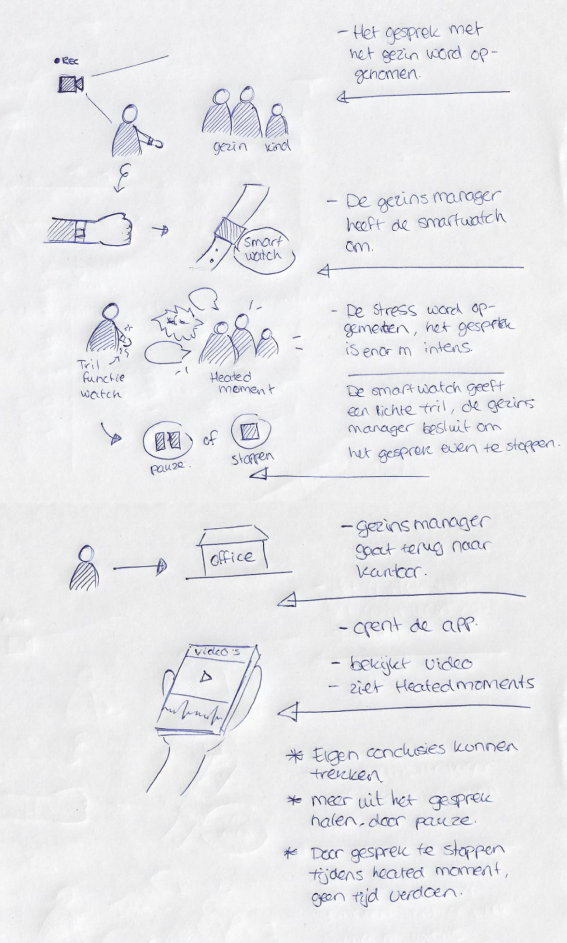 - Het gesprek met
het gezin word op-
genomen.
• REC
gezin kind
- De gezinsmanager
heeft de smartwatch
om.
Smart
watch
- De stress word op-
gemeten, het gesprek
is enorm intens.
Tril
functie
watch
Heated
moment
De smartwatch geeft
een lichte tril, de gezins
manager besluit om
het gesprek even te stoppen.
pauze.
of
stoppen
- gezinsmanager
gaat terug naar
kantoor.
office
- opent de app.
- bekijkt video
- ziet Heatedmoments
video's
* Eigen conclusies kunnen
trekken
* meer uit het gesprek
halen, door pauze.
* Door gesprek te stoppen
tijdens heated moment,
geen tijd verdoen.